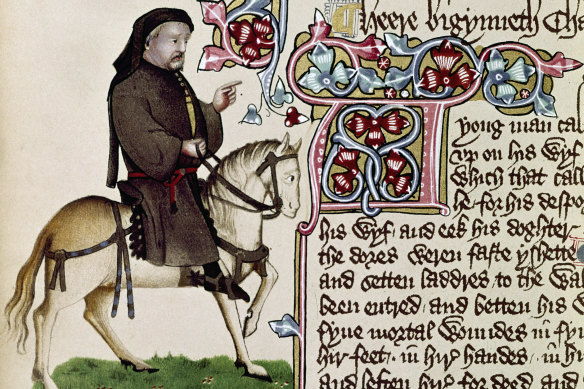 Heere bigynneth Chau
A
yong man cal
vp on his Wyf
Which that call
he for his despo
his Wyf / and eek his doghter
the dores weren faste yshette
and setten laddres / to the Wa
been entred / and betten his W
fyue mortal Woundes in fyu
hir feet / in hir handes / in hi
and leften hir for deed / and